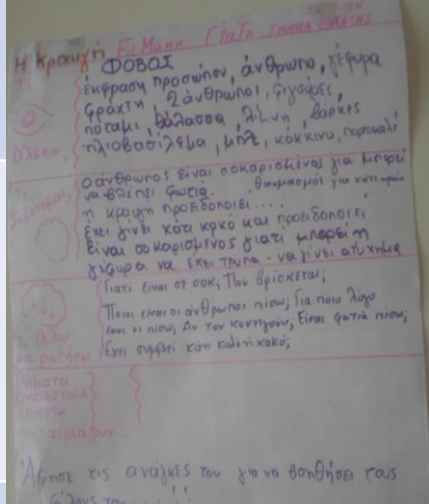 Η κραυγή Ε. Μουνκ Γιατί
Τι
βλέπω,
ΦΟΒΟΣ
έκφραση προσώπου, άνθρωπο, γέφυρα
φράχτη, 2 άνθρωποι, φιγούρες,
ποτάμι, θάλασσα, λίμνη, βάρκες
ηλιοβασίλεμα, μπλε, κόκκινο, πορτοκαλί
Τι
ο άνθρωπος είναι σοκαρισμένος για μπορεί
να βλέπει φωτιά. θαυμασμός για κάτι
η κραυγή προειδοποιεί....
έχει γίνει κάτι κακό και προειδοποιεί
είναι σοκαρισμενος γιατί μπορεί η
γέφυρα να έχει τρυπα. να γίνει ατύχημα
Τι θέλω
να ρωτήσω
Γιατί είναι σε σοκ; Που βρίσκεται;
Ποιοι είναι οι άνθρωποι πίσω; Για ποιο λόγο
είναι οι πίσω; Αν τον κυνηγούν; Είναι φωτιά πίσω;
Έχει συμβεί κάτι καλό ή κακό;
Ρήματα
ουσιαστικά
επίθετα
που ταιριάζουν...
Άφησε τις ανάγκες του για να βοηθήσει τους
φίλους του......!!